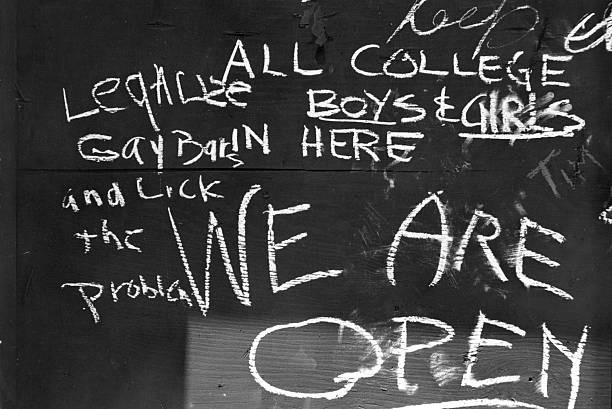 ALL COLLEGE
BOYS & GIRLS
IN HERE
LegALIze
Gay Bars
and Lick
the
problem
WE ARE
OPEN